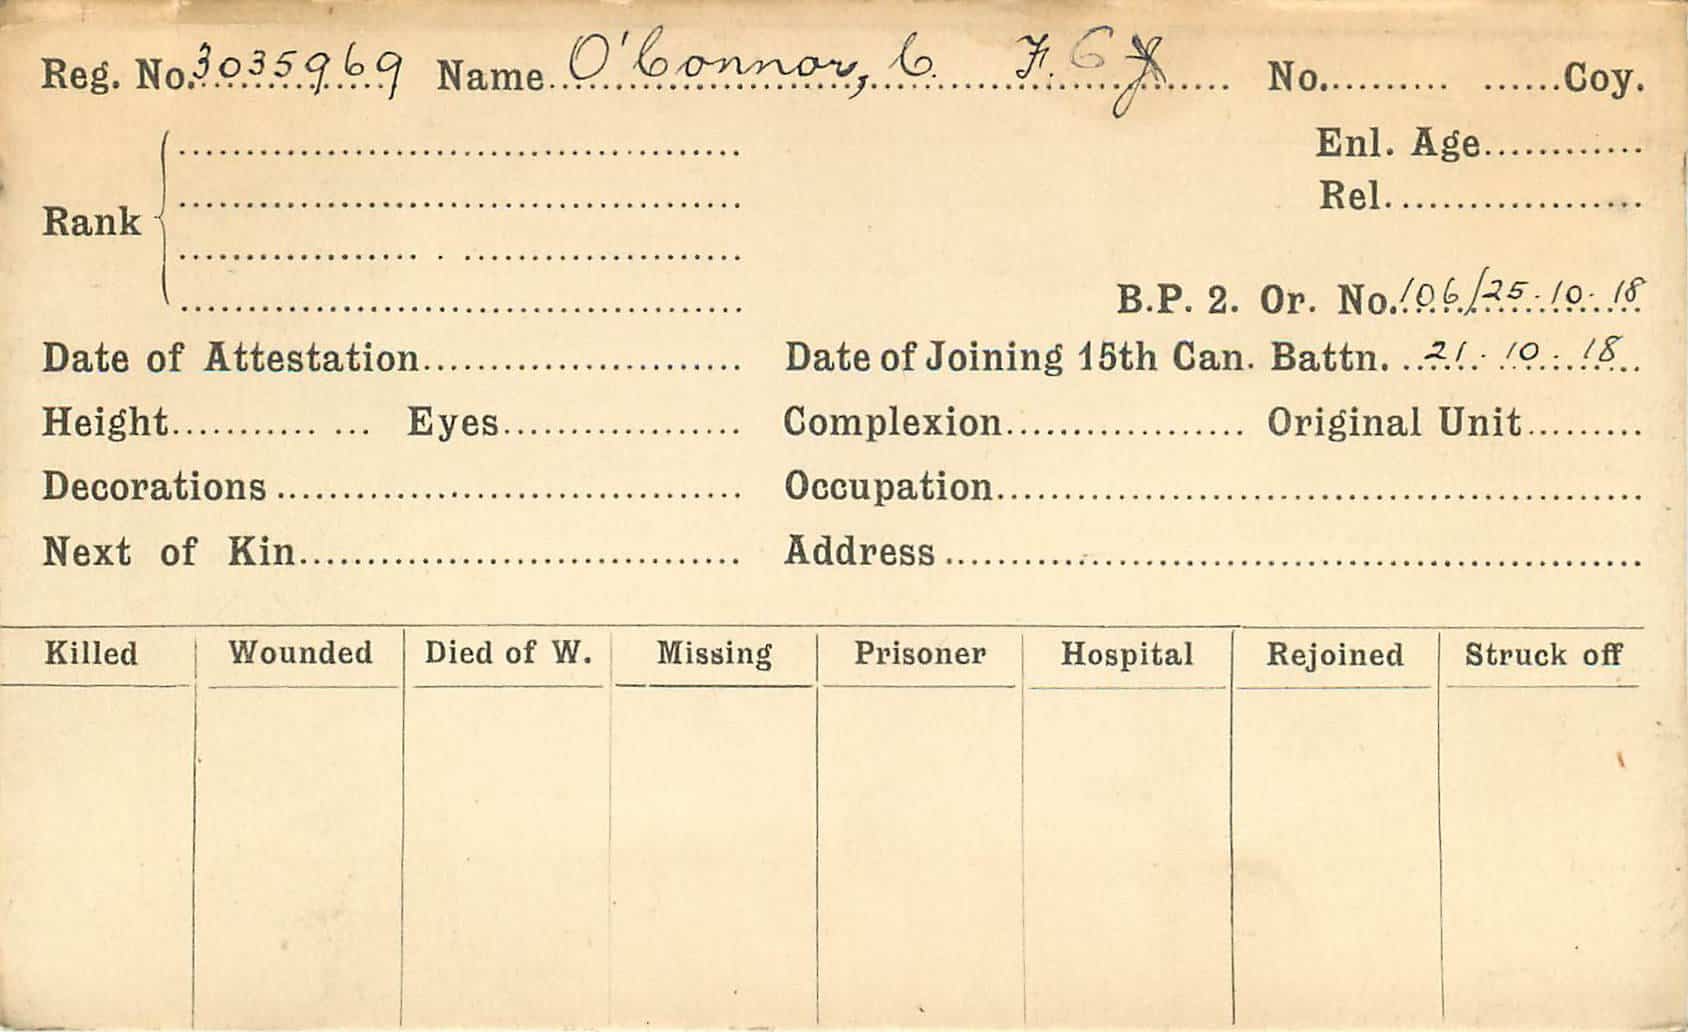 Reg. No. 3035969 Name O'Connor, C. F. C No. Coy.
Enl. Age
Rel.
Rank
B.P. 2. Or. No. 106/25.10.18
Date of Attestation Date of Joining 15th Can. Battn. 21.10.18
Height Eyes Complexion Original Unit
Decorations Occupation
Next of Kin Address
Killed Wounded Died of W. Missing Prisoner Hospital Rejoined Struck off